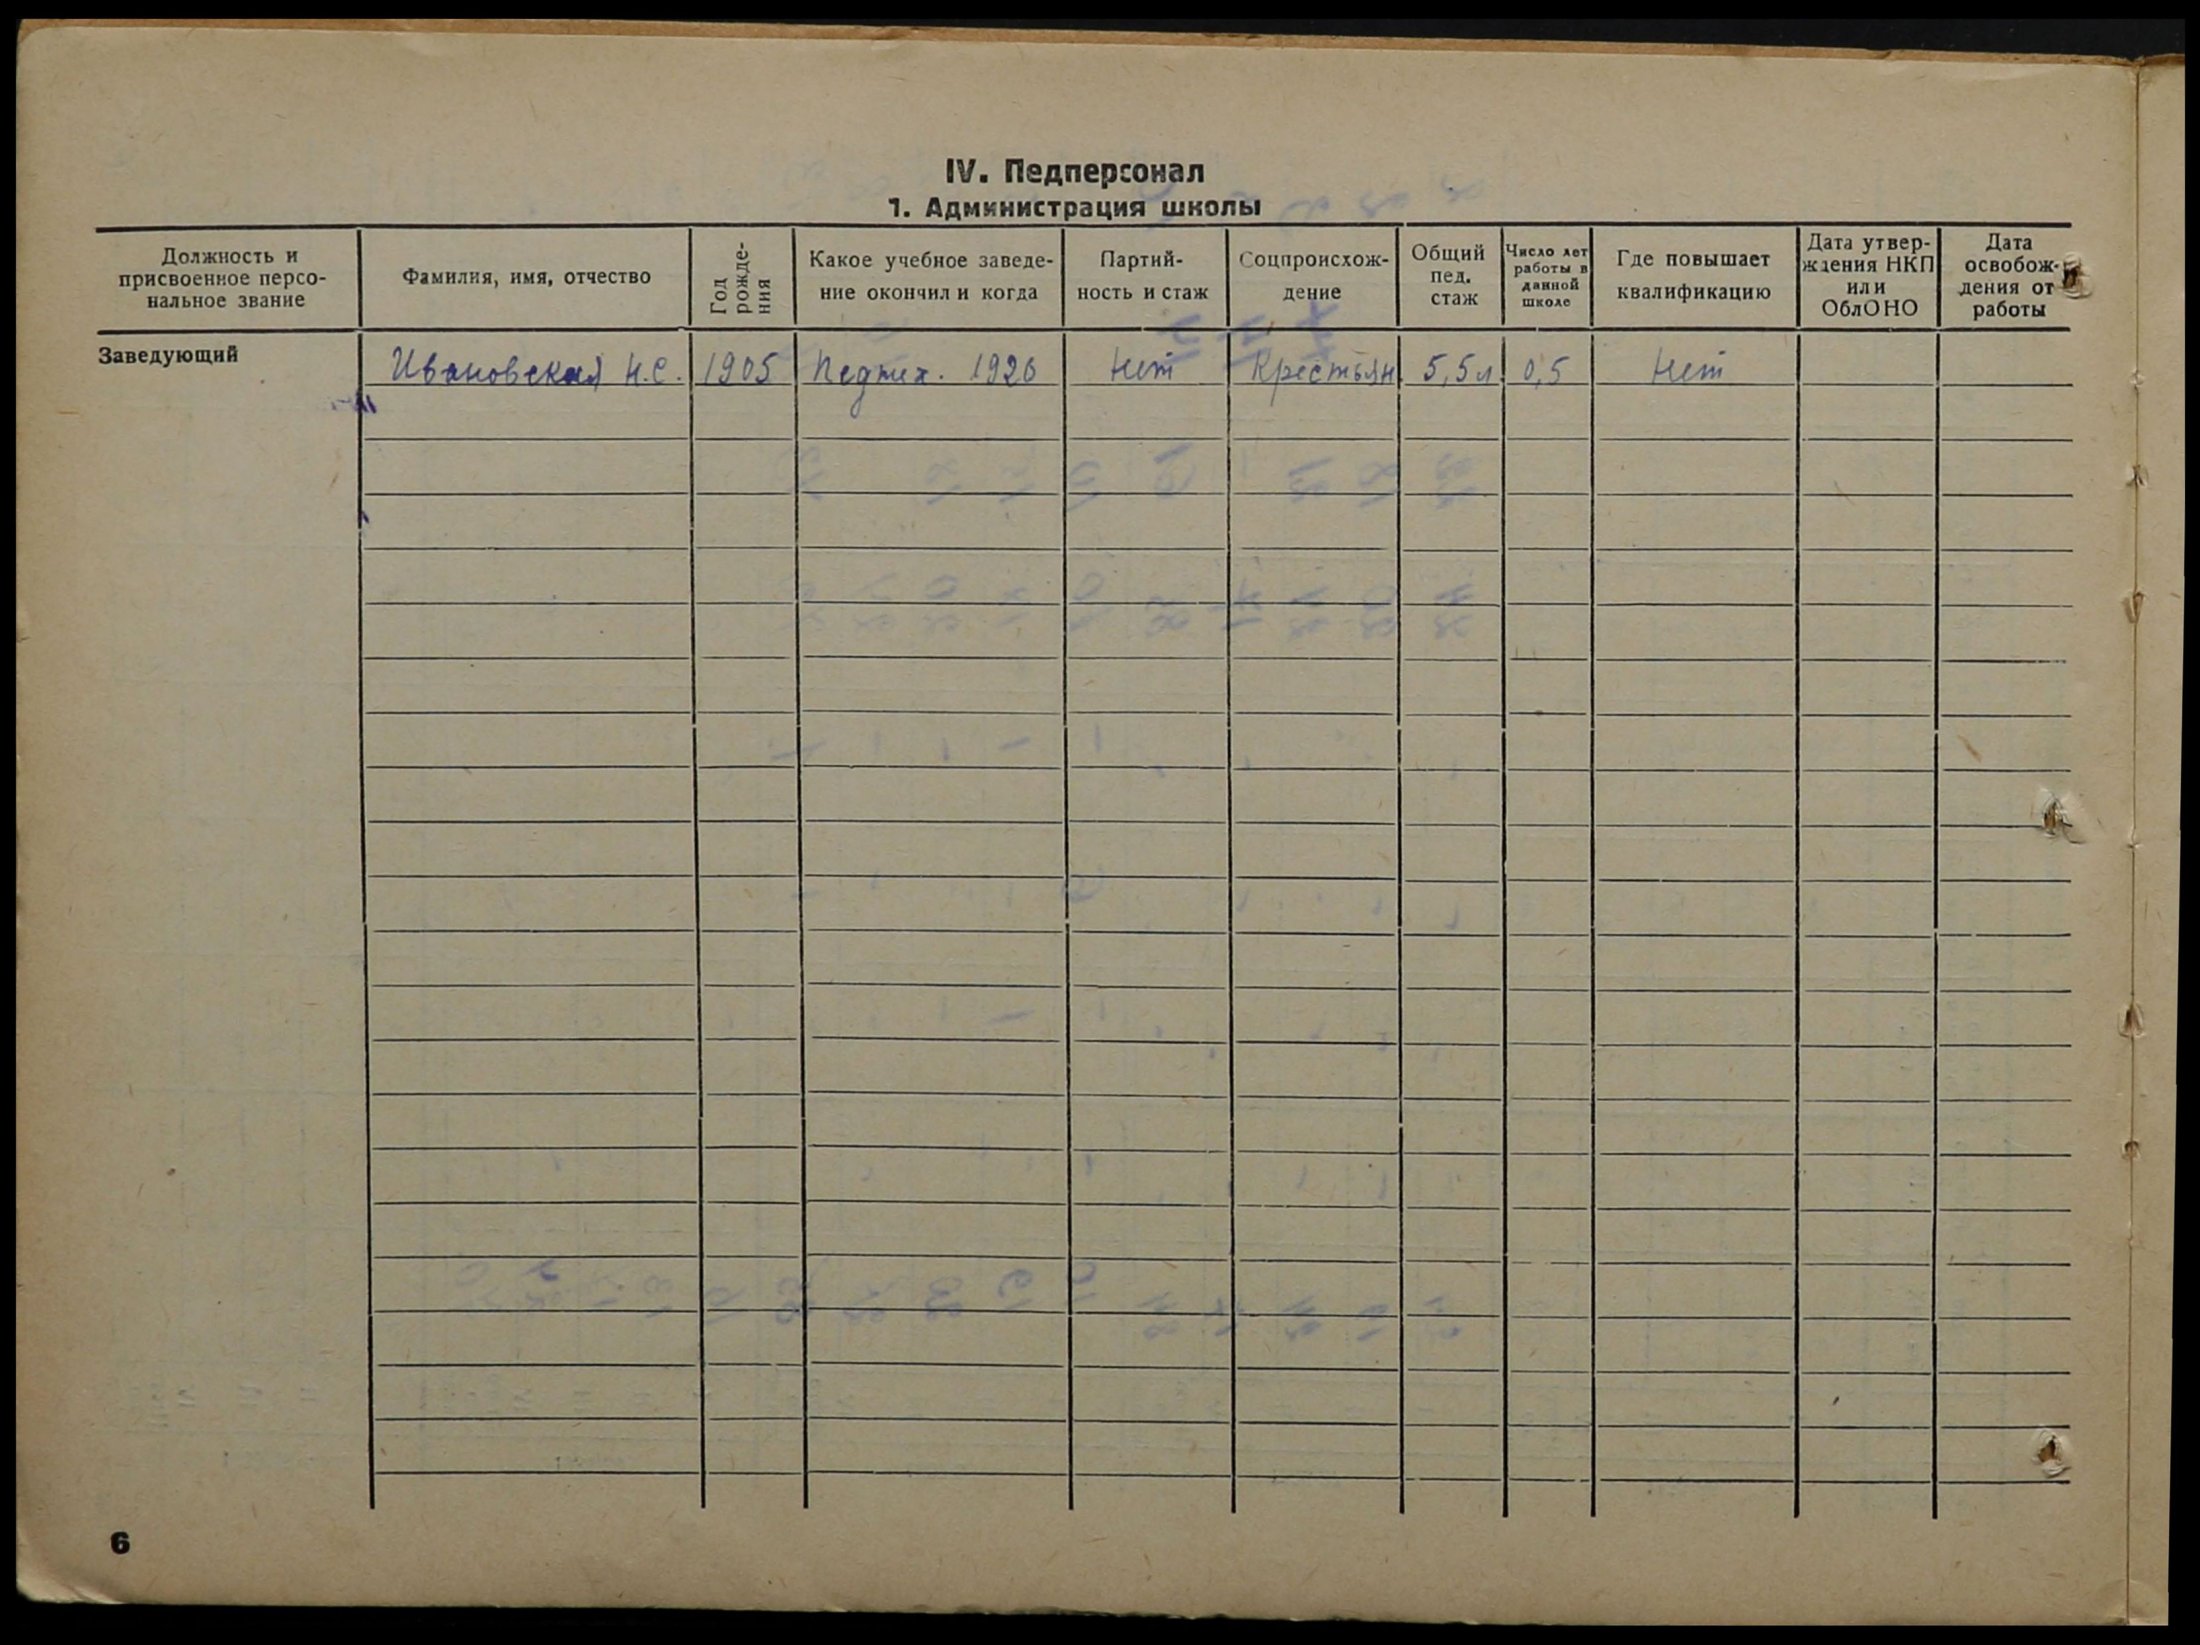 IV. Педперсонал
1. Администрация школы
Должность и присвоенное персо-нальное звание
Фамилия, имя, отчество
Год рожде-ния
Какое учебное заведе-ние окончил и когда
Партий-ность и стаж
Соцпроисхож-дение
Общий пед. стаж
Число лет работы в данной школе
Где повышает квалификацию
Дата утвер-ждения НКП или ОблОНО
Дата освобож-дения от работы
Заведующий Ивановская Н.С. 1905 Педтех. 1926 Нет Крестьян 5,5 л 0,5 Нет
6